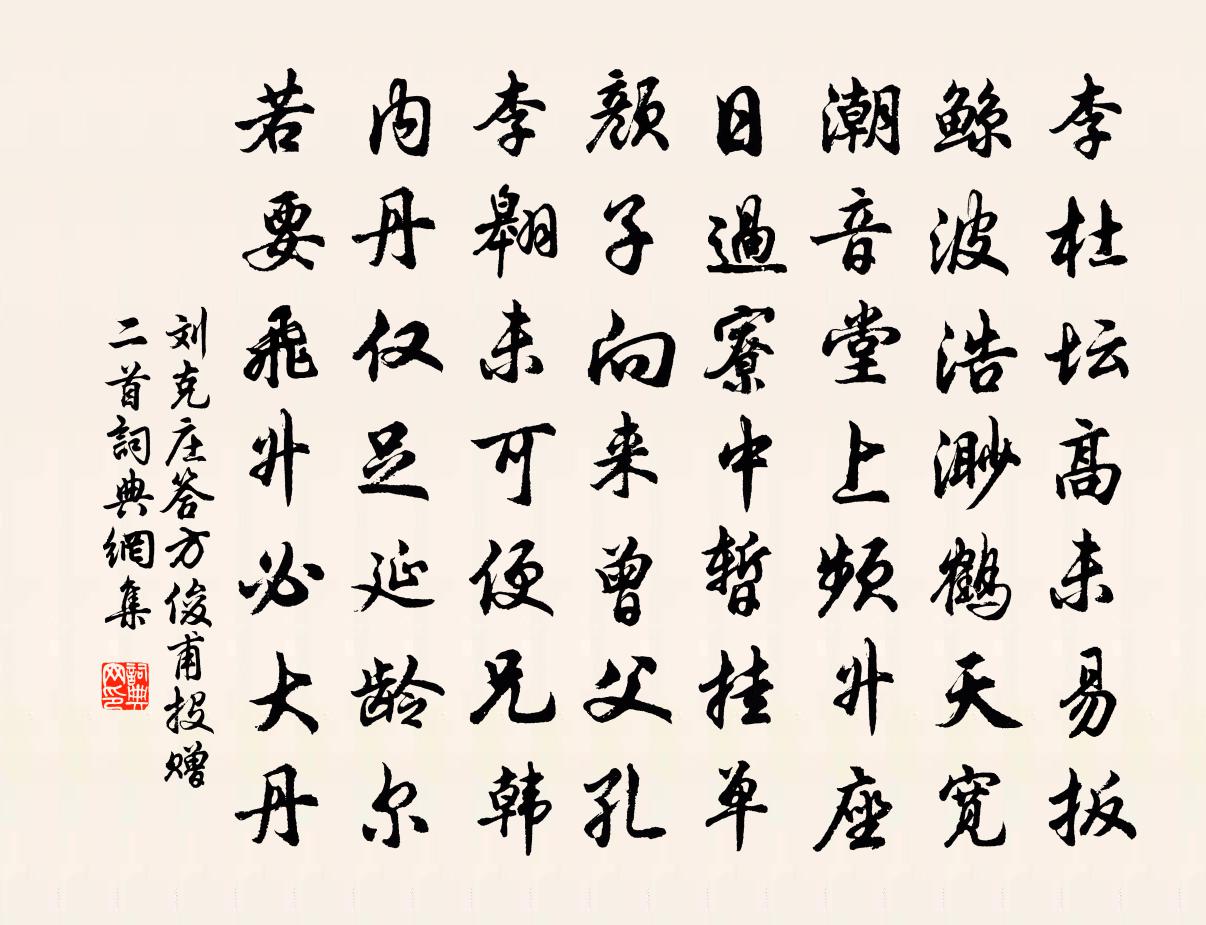 李杜坛高未易扳
鲸波浩渺鹤天宽
潮音堂上频升座
日過寮中暫挂单
颜子向来曾父孔
李翱未可便兄韩
内丹仅足延龄尔
若要飛升必大丹
刘克庄答方俊甫投赠
二首詞典網集
詞典网印